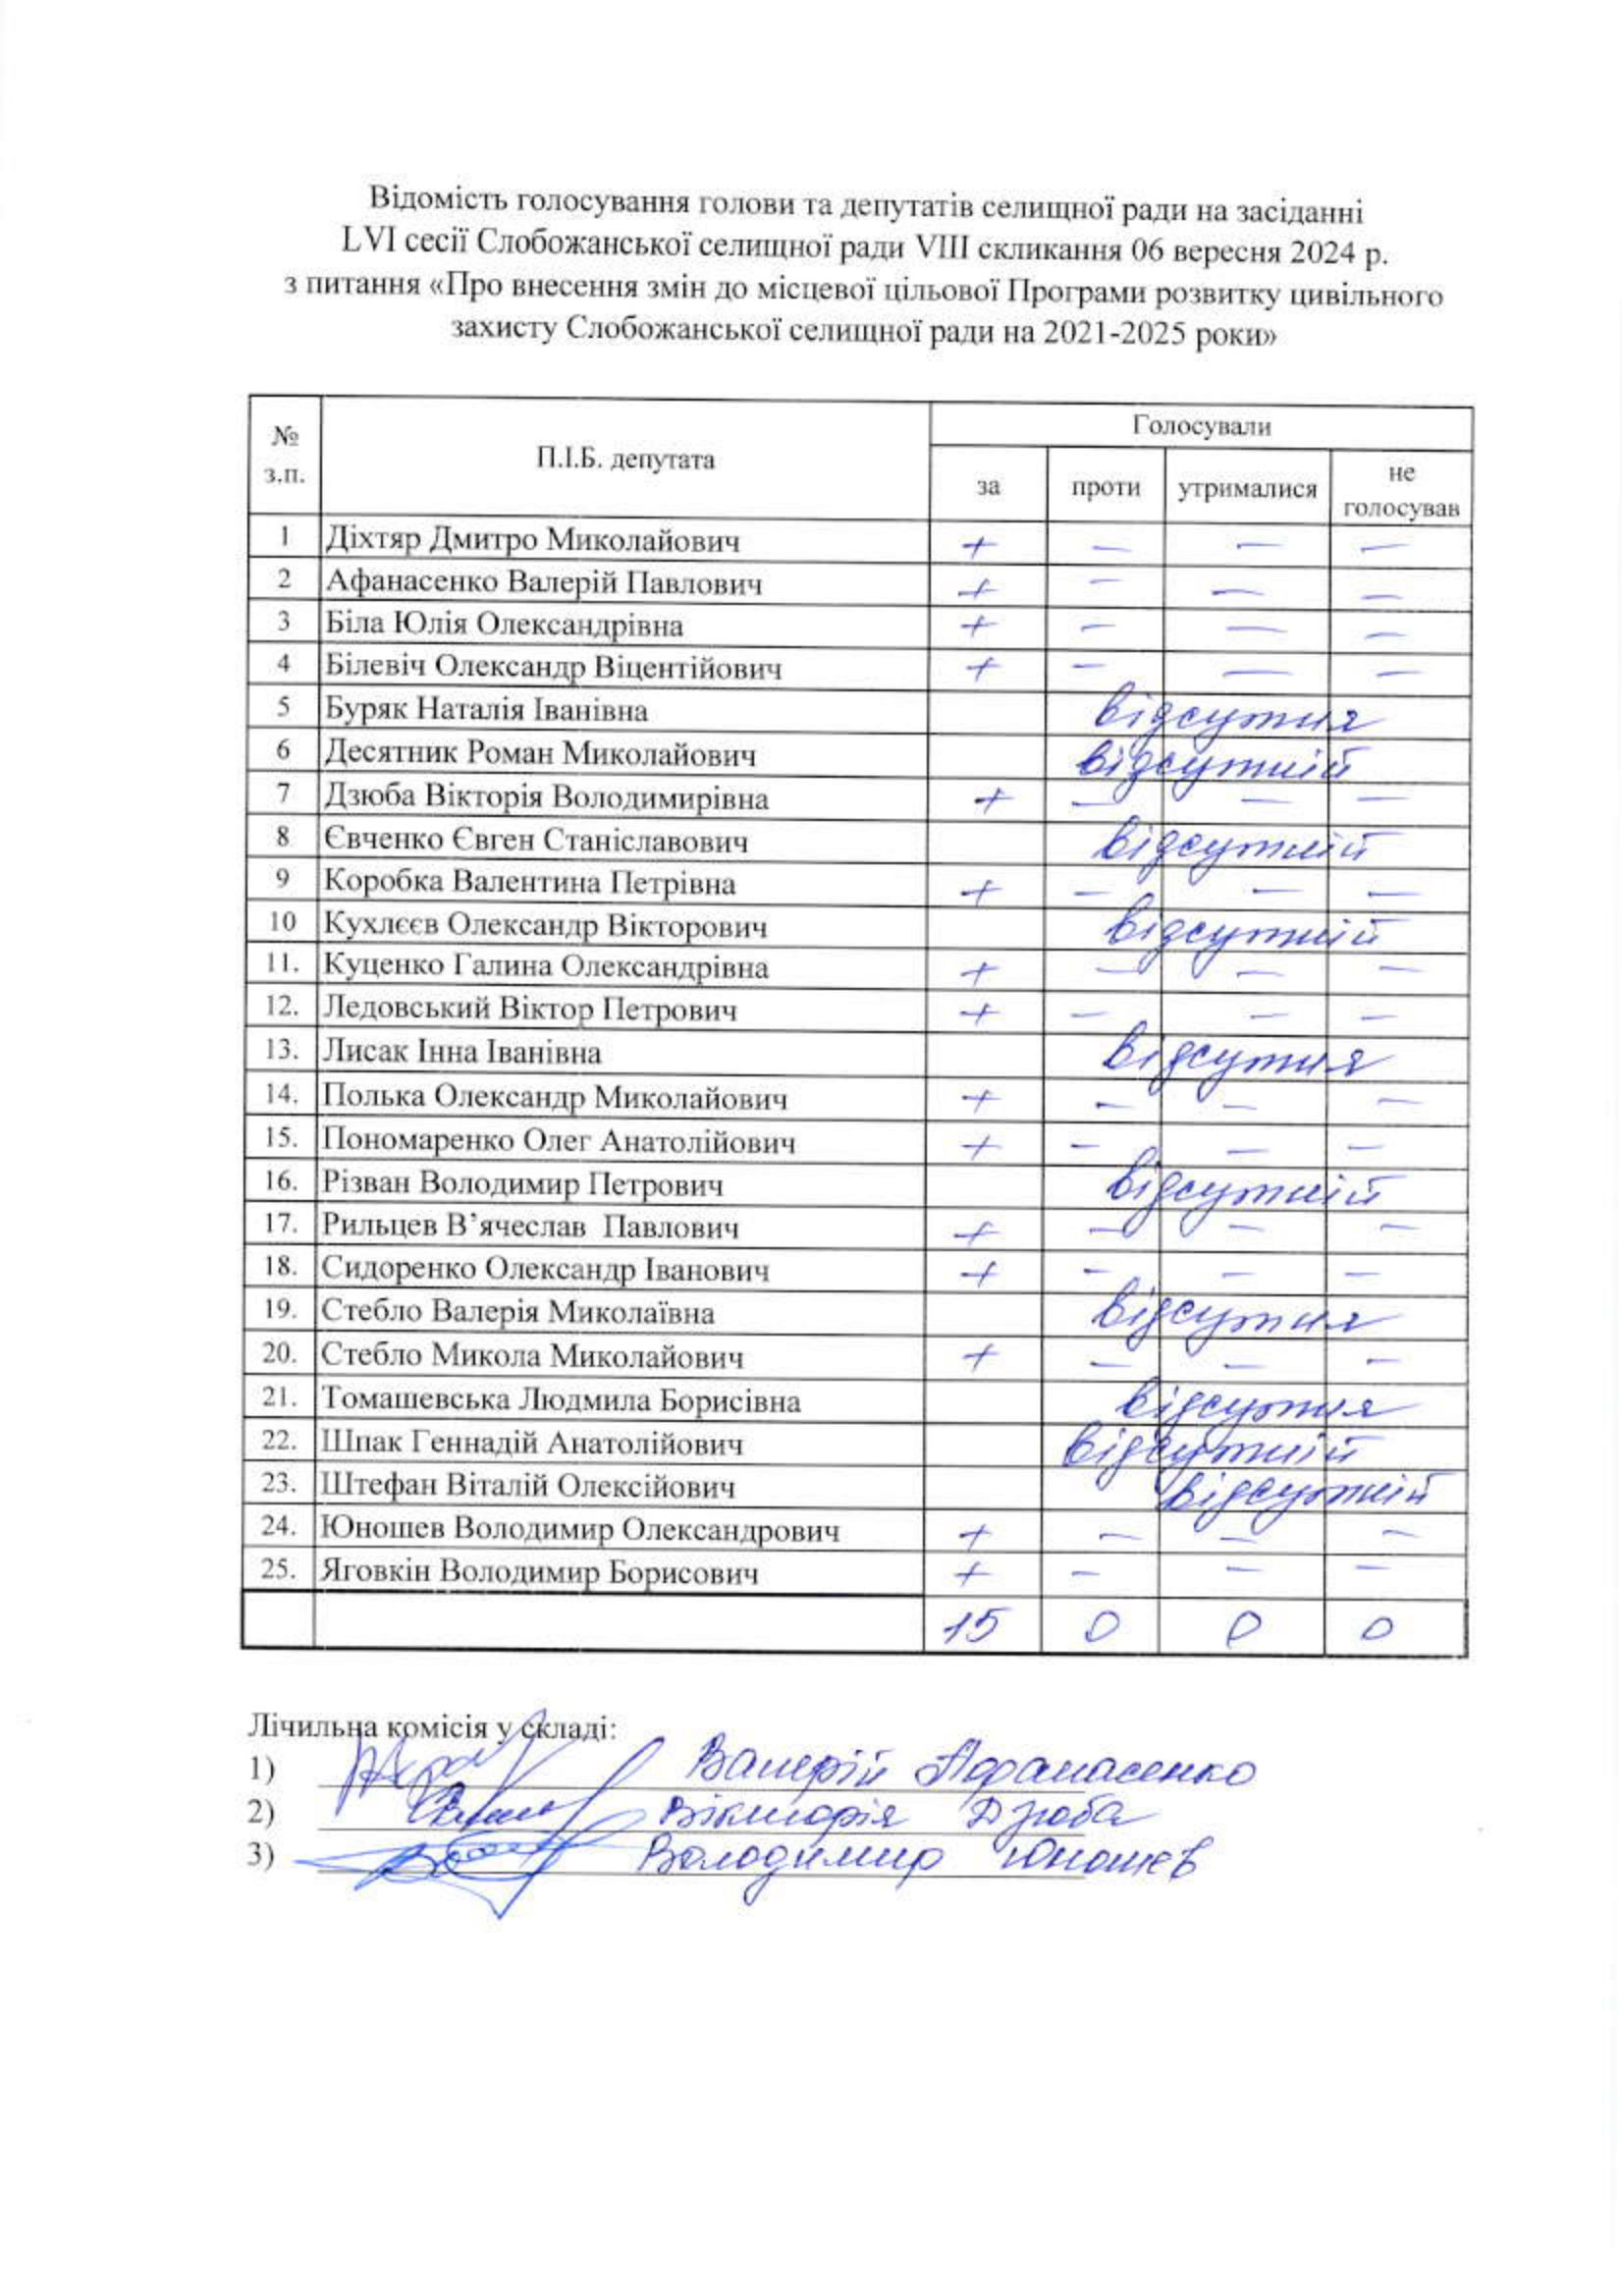 Відомість голосування голови та депутатів селищної ради на засіданні
LVI сесії Слобожанської селищної ради VIII скликання 06 вересня 2024 р.
з питання «Про внесення змін до місцевої цільової Програми розвитку цивільного
захисту Слобожанської селищної ради на 2021-2025 роки»
№ з.п. П.І.Б. депутата Голосували
за проти утрималися не голосував
1 Діхтяр Дмитро Миколайович + — — —
2 Афанасенко Валерій Павлович + — — —
3 Біла Юлія Олександрівна + — — —
4 Білевіч Олександр Віцентійович + — — —
5 Буряк Наталія Іванівна відсутня
6 Десятник Роман Миколайович відсутній
7 Дзюба Вікторія Володимирівна + — — —
8 Євченко Євген Станіславович відсутній
9 Коробка Валентина Петрівна + — — —
10 Кухлєєв Олександр Вікторович відсутній
11. Куценко Галина Олександрівна + — — —
12. Ледовський Віктор Петрович + — — —
13. Лисак Інна Іванівна відсутня
14. Полька Олександр Миколайович + — — —
15. Пономаренко Олег Анатолійович + — — —
16. Різван Володимир Петрович відсутній
17. Рильцев В’ячеслав Павлович + — — —
18. Сидоренко Олександр Іванович + — — —
19. Стебло Валерія Миколаївна відсутня
20. Стебло Микола Миколайович + — — —
21. Томашевська Людмила Борисівна відсутня
22. Шпак Геннадій Анатолійович відсутній
23. Штефан Віталій Олексійович відсутній
24. Юношев Володимир Олександрович + — — —
25. Яговкін Володимир Борисович + — — —
15 0 0 0
Лічильна комісія у складі:
1) Валерій Афанасенко
2) Вікторія Дзюба
3) Володимир Юношев